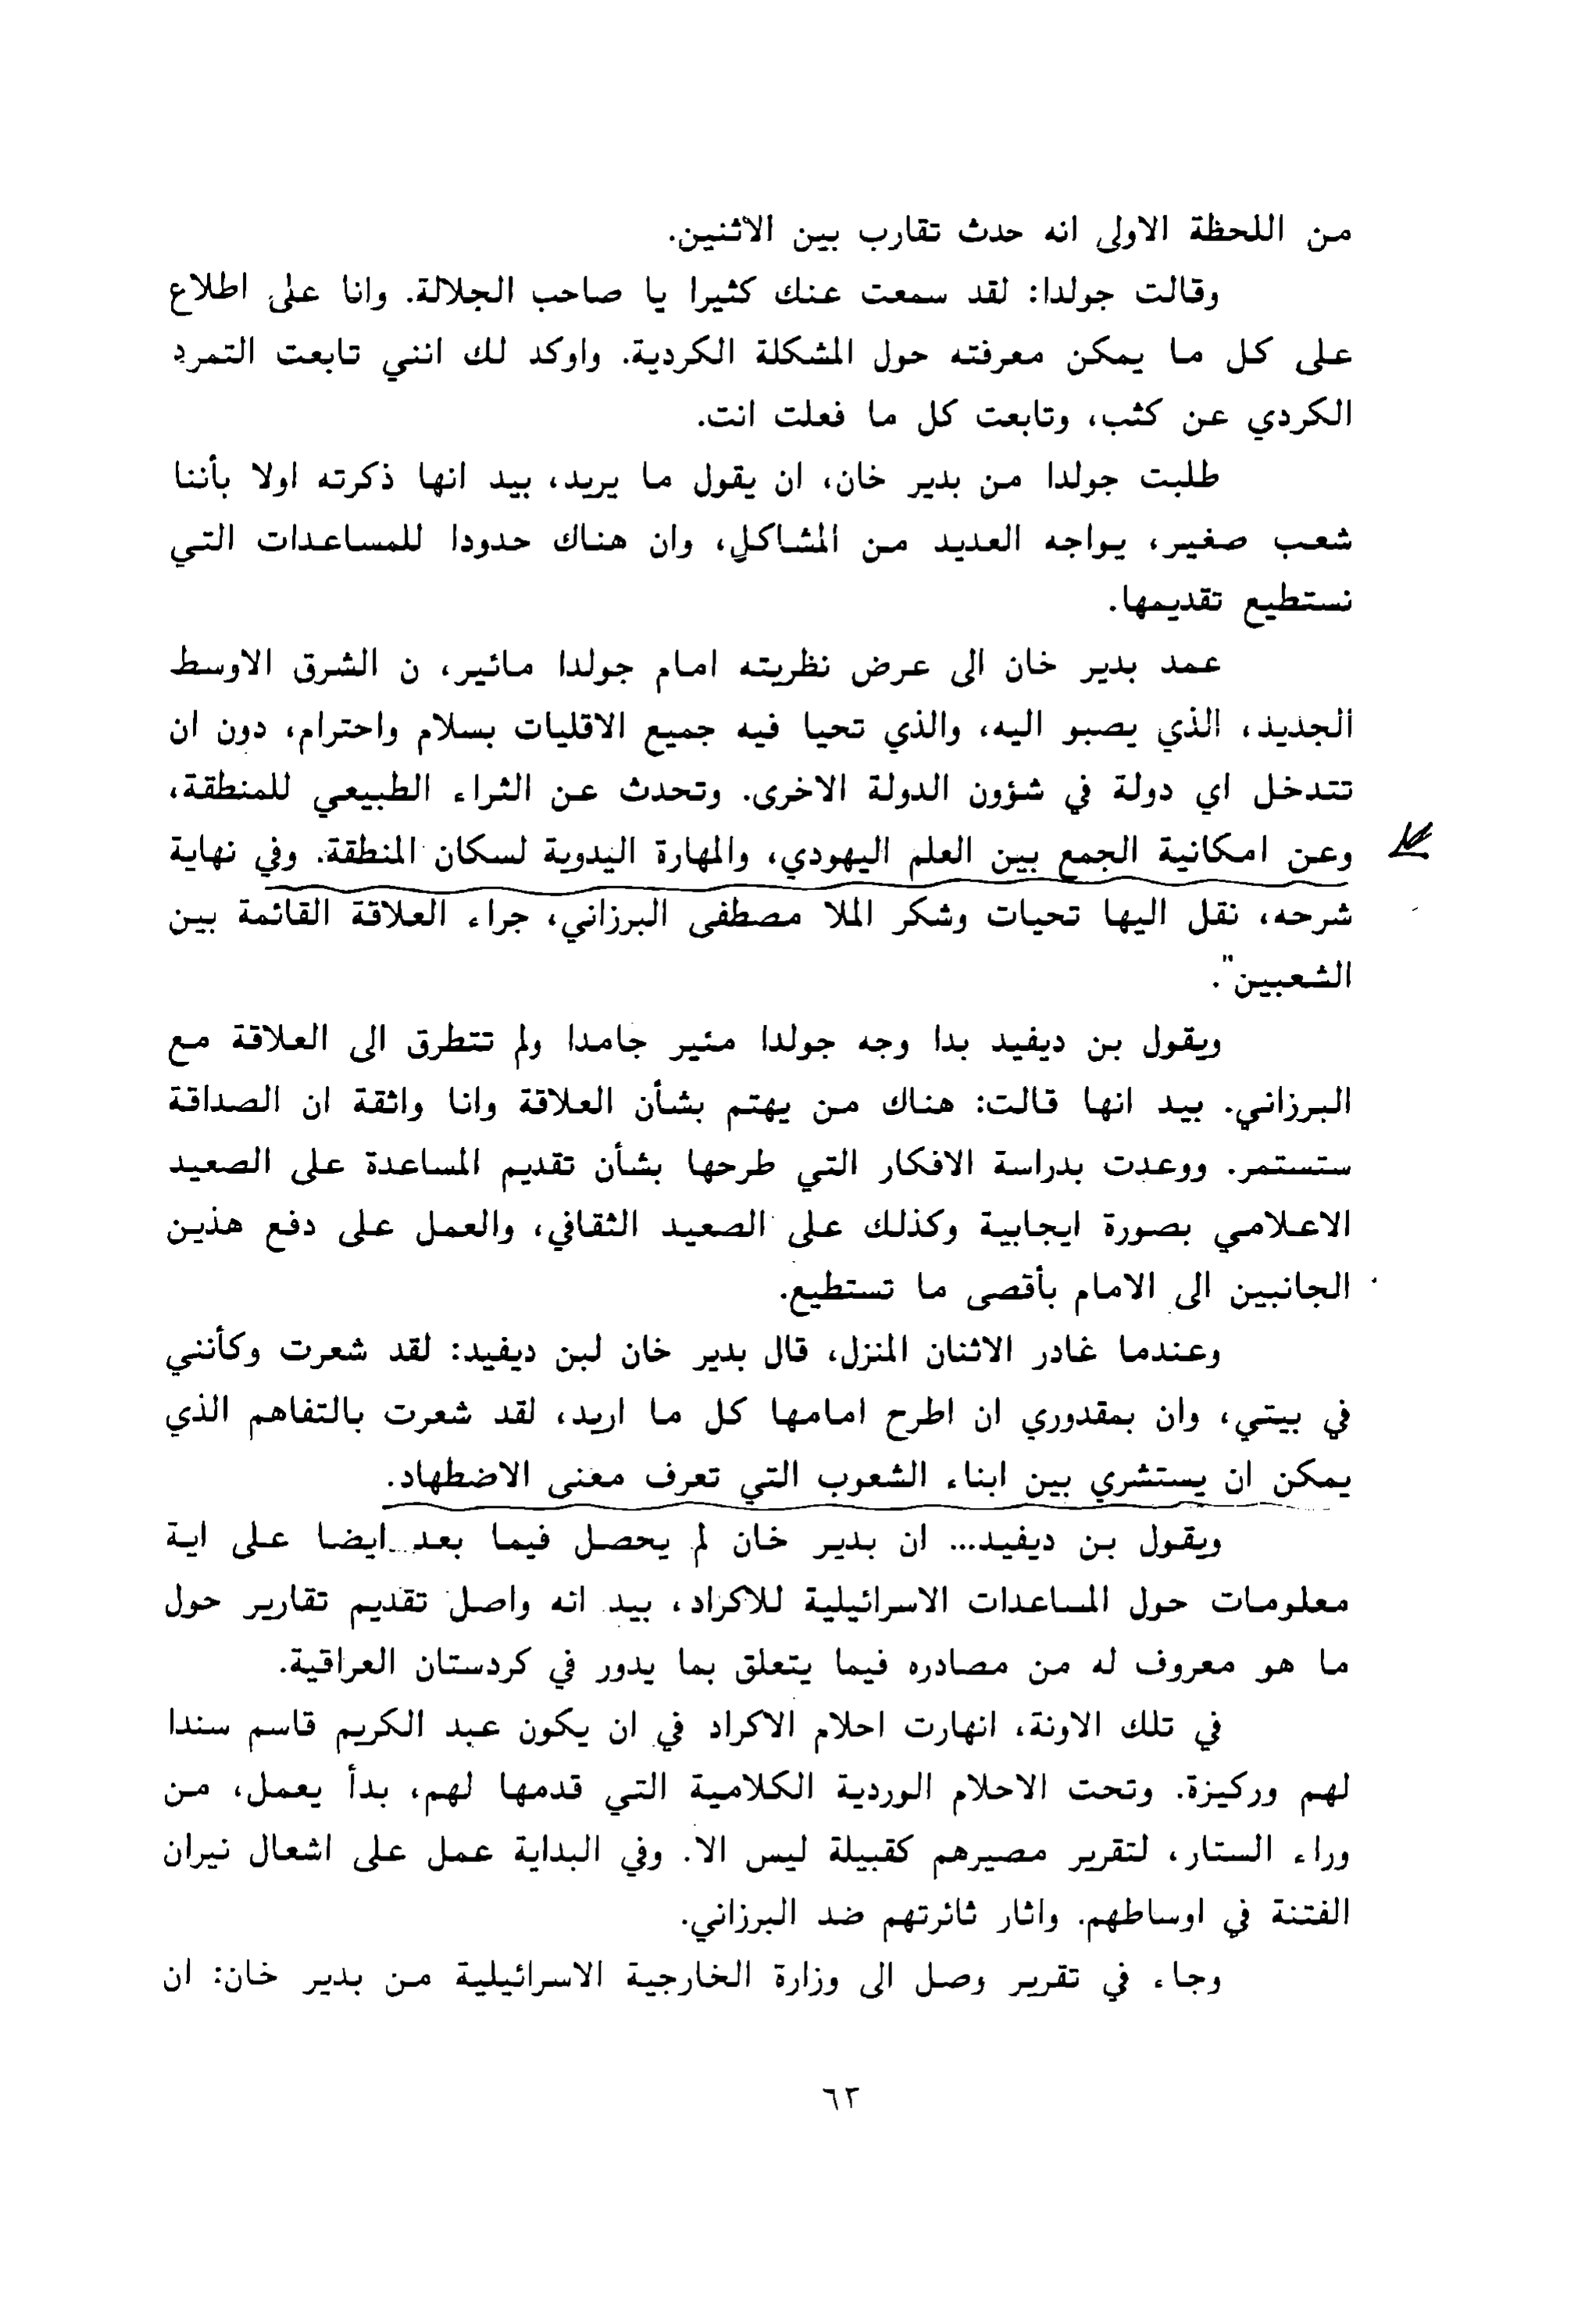 من اللحظة الاولى انه حدث تقارب بين الاثنين.
وقالت جولدا: لقد سمعت عنك كثيرا يا صاحب الجلالة. وانا على اطلاع
على كل ما يمكن معرفته حول المشكلة الكردية. واوكد لك انني تابعت التمرد
الكردي عن كثب، وتابعت كل ما فعلت انت.
طلبت جولدا من بدير خان، ان يقول ما يريد، بيد انها ذكرته اولا بأننا
شعب صغير، يواجه العديد من المشاكل، وان هناك حدودا للمساعدات التي
نستطيع تقديمها.
عمد بدير خان الى عرض نظريته امام جولدا مائير، ن الشرق الاوسط
الجديد، الذي يصبو اليه، والذي تحيا فيه جميع الاقليات بسلام واحترام، دون ان
تتدخل اي دولة في شؤون الدولة الاخرى. وتحدث عن الثراء الطبيعي للمنطقة،
وعن امكانية الجمع بين العلم اليهودي، والمهارة اليدوية لسكان المنطقة. وفي نهاية
شرحه، نقل اليها تحيات وشكر الملا مصطفى البرزاني، جراء العلاقة القائمة بين
الشعبين".
ويقول بن ديفيد بدا وجه جولدا مئير جامدا ولم تتطرق الى العلاقة مع
البرزاني. بيد انها قالت: هناك من يهتم بشأن العلاقة وانا واثقة ان الصداقة
ستستمر. ووعدت بدراسة الافكار التي طرحها بشأن تقديم المساعدة على الصعيد
الاعلامي بصورة ايجابية وكذلك على الصعيد الثقافي، والعمل على دفع هذين
الجانبين الى الامام بأقصى ما تستطيع.
وعندما غادر الاثنان المنزل، قال بدير خان لبن ديفيد: لقد شعرت وكأنني
في بيتي، وان بمقدوري ان اطرح امامها كل ما اريد، لقد شعرت بالتفاهم الذي
يمكن ان يستشري بين ابناء الشعوب التي تعرف معنى الاضطهاد.
ويقول بن ديفيد... ان بدير خان لم يحصل فيما بعد ايضا على اية
معلومات حول المساعدات الاسرائيلية للاكراد، بيد انه واصل تقديم تقارير حول
ما هو معروف له من مصادره فيما يتعلق بما يدور في كردستان العراقية.
في تلك الاونة، انهارت احلام الاكراد في ان يكون عبد الكريم قاسم سندا
لهم وركيزة. وتحت الاحلام الوردية الكلامية التي قدمها لهم، بدأ يعمل، من
وراء الستار، لتقرير مصيرهم كقبيلة ليس الا. وفي البداية عمل على اشعال نيران
الفتنة في اوساطهم. واثار ثائرتهم ضد البرزاني.
وجاء في تقرير وصل الى وزارة الخارجية الاسرائيلية من بدير خان: ان
٦٣